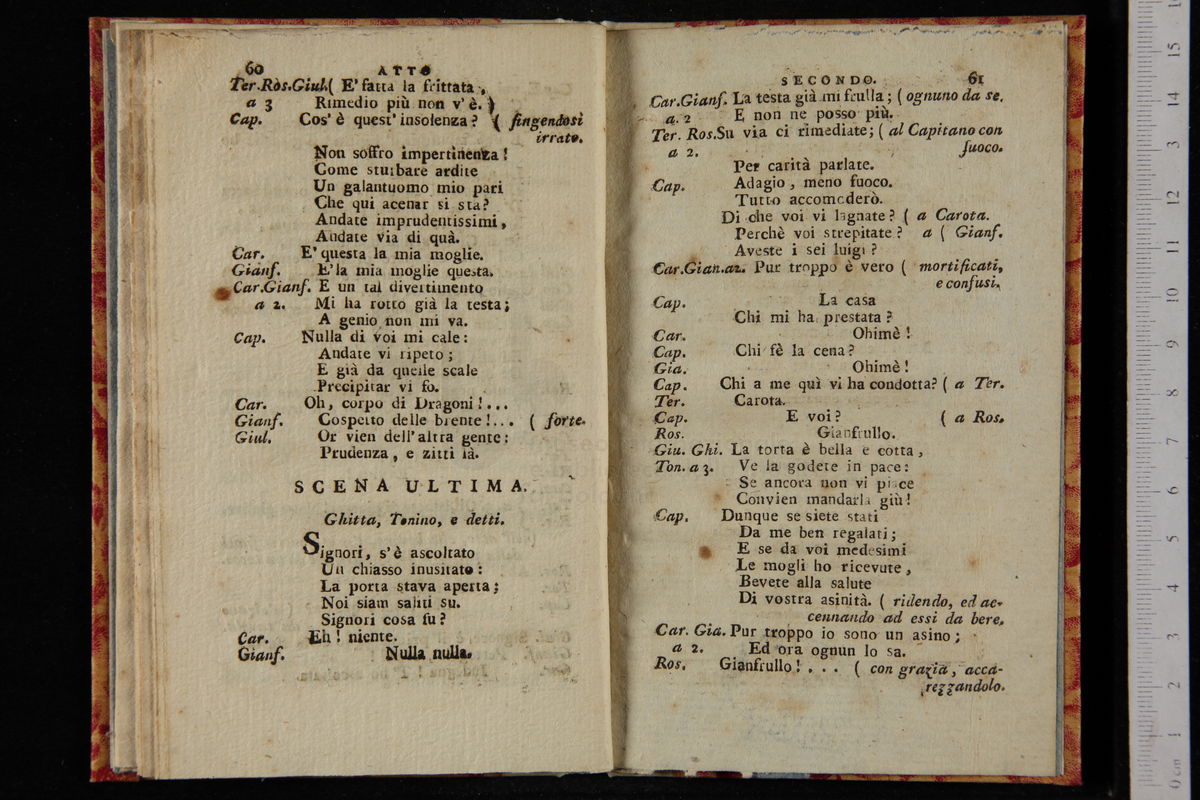 60 ATTO
Ter.Ros.Giul.( E' fatta la frittata,
a 3 Rimedio più non v' è. )
Cap. Cos' è quest' insolenza? ( fingendosi
irrato.
Non soffro impertinenza!
Come sturbare ardite
Un galantuomo mio pari
Che qui acenar si sta?
Andate imprudentissimi,
Andate via di quà.
Car. E' questa la mia moglie.
Gianf. E' la mia moglie questa.
Car.Gianf. E un tal divertimento
a 2. Mi ha rotto già la testa;
A genio non mi va.
Cap. Nulla di voi mi cale:
Andate vi ripeto;
E già da quelle scale
Precipitar vi fo.
Car. Oh, corpo di Dragoni!...
Gianf. Cospetto delle brente!... ( forte.
Giul. Or vien dell' altra gente:
Prudenza, e zitti là.
SCENA ULTIMA.
Ghitta, Tonino, e detti.
Signori, s' è ascoltato
Un chiasso inusitato:
La porta stava aperta;
Noi siam saliti su.
Signori cosa fu?
Car. Eh! niente.
Gianf. Nulla nulla.
SECONDO. 61
Car.Gianf. La testa già mi frulla; ( ognuno da se.
a. 2 E non ne posso più.
Ter. Ros. Su via ci rimediate; ( al Capitano con
a 2. fuoco.
Per carità parlate.
Cap. Adagio, meno fuoco.
Tutto accomederò.
Di che voi vi lagnate? ( a Carota.
Perchè voi strepitate? a ( Gianf.
Aveste i sei luigi?
Car.Gian.a2. Pur troppo è vero ( mortificati,
e confusi.
Cap. La casa
Chi mi ha prestata?
Car. Ohimè!
Cap. Chi fè la cena?
Gia. Ohimè!
Cap. Chi a me quì vi ha condotta? ( a Ter.
Ter. Carota.
Cap. E voi? ( a Ros.
Ros. Gianfrullo.
Giu. Ghi. La torta è bella e cotta,
Ton. a 3. Ve la godete in pace:
Se ancora non vi piace
Convien mandarla giù!
Cap. Dunque se siete stati
Da me ben regalati;
E se da voi medesimi
Le mogli ho ricevute,
Bevete alla salute
Di vostra asinità. ( ridendo, ed ac-
cennando ad essi da bere.
Car. Gia. Pur troppo io sono un asino;
a 2. Ed ora ognun lo sa.
Ros. Gianfrullo!... ( con grazia, acca-
rezzandolo.
0 cm 1 2 3 4 5 6 7 8 9 10 11 12 13 14 15